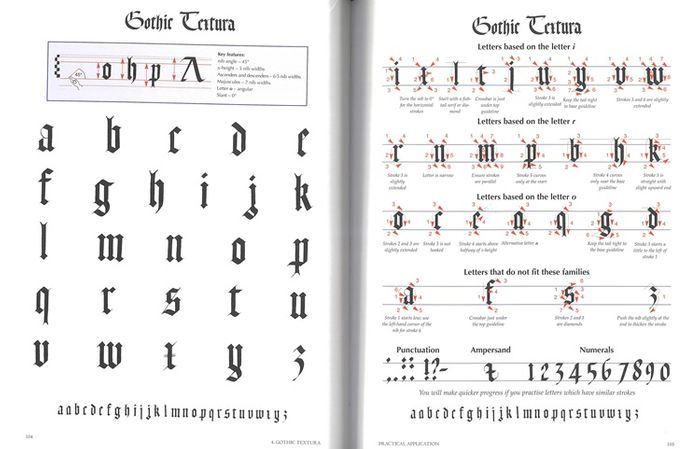 Gothic Textura
Key features:
nib angle – 45°
x-height – 5 nib widths
Ascenders and descenders – 6·5 nib widths
Majuscules – 7 nib widths
Letter o – angular
Slant – 0°
45°
o h p A
a b c d e
f g h i j k
l m n o p
q r s t u
v w x y z
aabcdefghijjklmnopqrstuvwxyz
104
4. GOTHIC TEXTURA
Gothic Textura
Letters based on the letter i
i s l t j u y v w
Turn the nib to 0° for the horizontal strokes
Start with a fish-tail serif or diamond
Crossbar is just under top guideline
Stroke 3 is slightly extended
Keep the tail tight to base guideline
Strokes 3 and 6 are slightly extended
Letters based on the letter r
r n m p b h k
Stroke 3 is slightly extended
Letter is narrow
Ensure strokes are parallel
Stroke 5 curves only at the start
Stroke 4 curves only near the base guideline
Stroke 5 is straight with slight upward end
Letters based on the letter o
o c e a q g d
Strokes 2 and 3 are slightly extended
Stroke 3 is not hooked
Stroke 6 starts above halfway of x-height
Alternative letter a
Keep the tail tight to the base guideline
Stroke 5 starts a little to the left of stroke 1
Letters that do not fit these families
a f s z
Stroke 1 starts low; use the left-hand corner of the nib for stroke 6
Crossbar just under the top guideline
Strokes 2 and 3 are diamonds
Push the nib slightly at the end to thicken the stroke
Punctuation Ampersand Numerals
. : ; !?-
1234567890
You will make quicker progress if you practise letters which have similar strokes
aabcdefghijjklmnopqrstuvwxyz
PRACTICAL APPLICATION
105